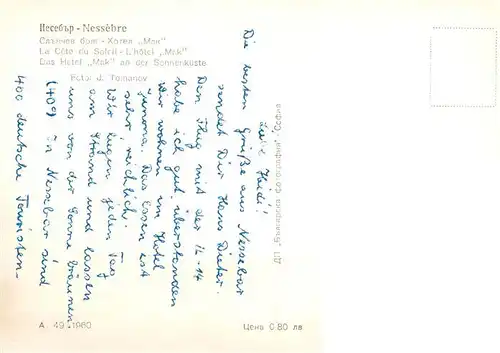 Несебър - Nessèbre
Слънчев бряг - Хотел „Мак"
La Côte du Soleil - L'hôtel „Mak"
Das Hotel „Mak" an der Sonnenküste
Foto: J. Tomanov
Liebe Heidi!
Die besten Grüße aus Nessebar
sendet Dir Hans Dieter.
Den Flug mit der IL-14
habe ich gut überstanden
Wir wohnen im Hotel
Das Essen ist
sehr reichlich.
Wir liegen jeden Tag
am Strand und lassen
uns von der Sonne bräunen
(40°) In Nessebar sind
400 deutsche Touristen.
ДП „Българска фотография" София
А 49 1960
Цена 0·80 лв